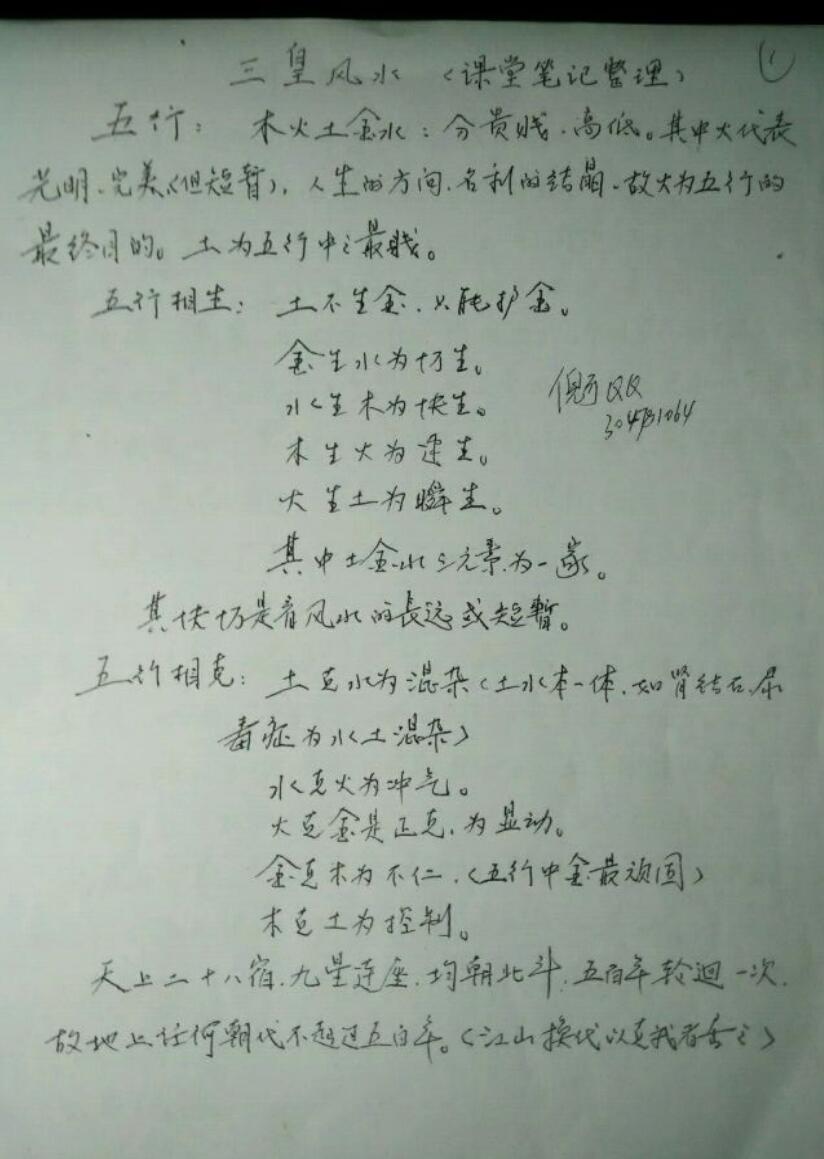 三皇风水 (课堂笔记整理) ①
五行: 木火土金水:分贵贱、高低。其中火代表
光明、完美(但短暂),人生的方向、名利的结晶、故火为五行的
最终目的。土为五行中之最贱。
五行相生: 土不生金、只能护金。
金生水为切生。
水生木为快生。
QQ
木生火为速生。
火生土为瞬生。
其中土金水三元素为一家。
其快切是看风水的長远或短暂。
五行相克: 土克水为混杂(土水本一体、如肾结石、尿
毒症为水土混杂)
水克火为冲气。
火克金是正克、为显动。
金克木为不仁、(五行中金最顽固)
木克土为控制。
天上二十八宿、九星连座、均朝北斗、五百年轮迴一次、
故地上任何朝代不超过五百年。(江山换代以克我者